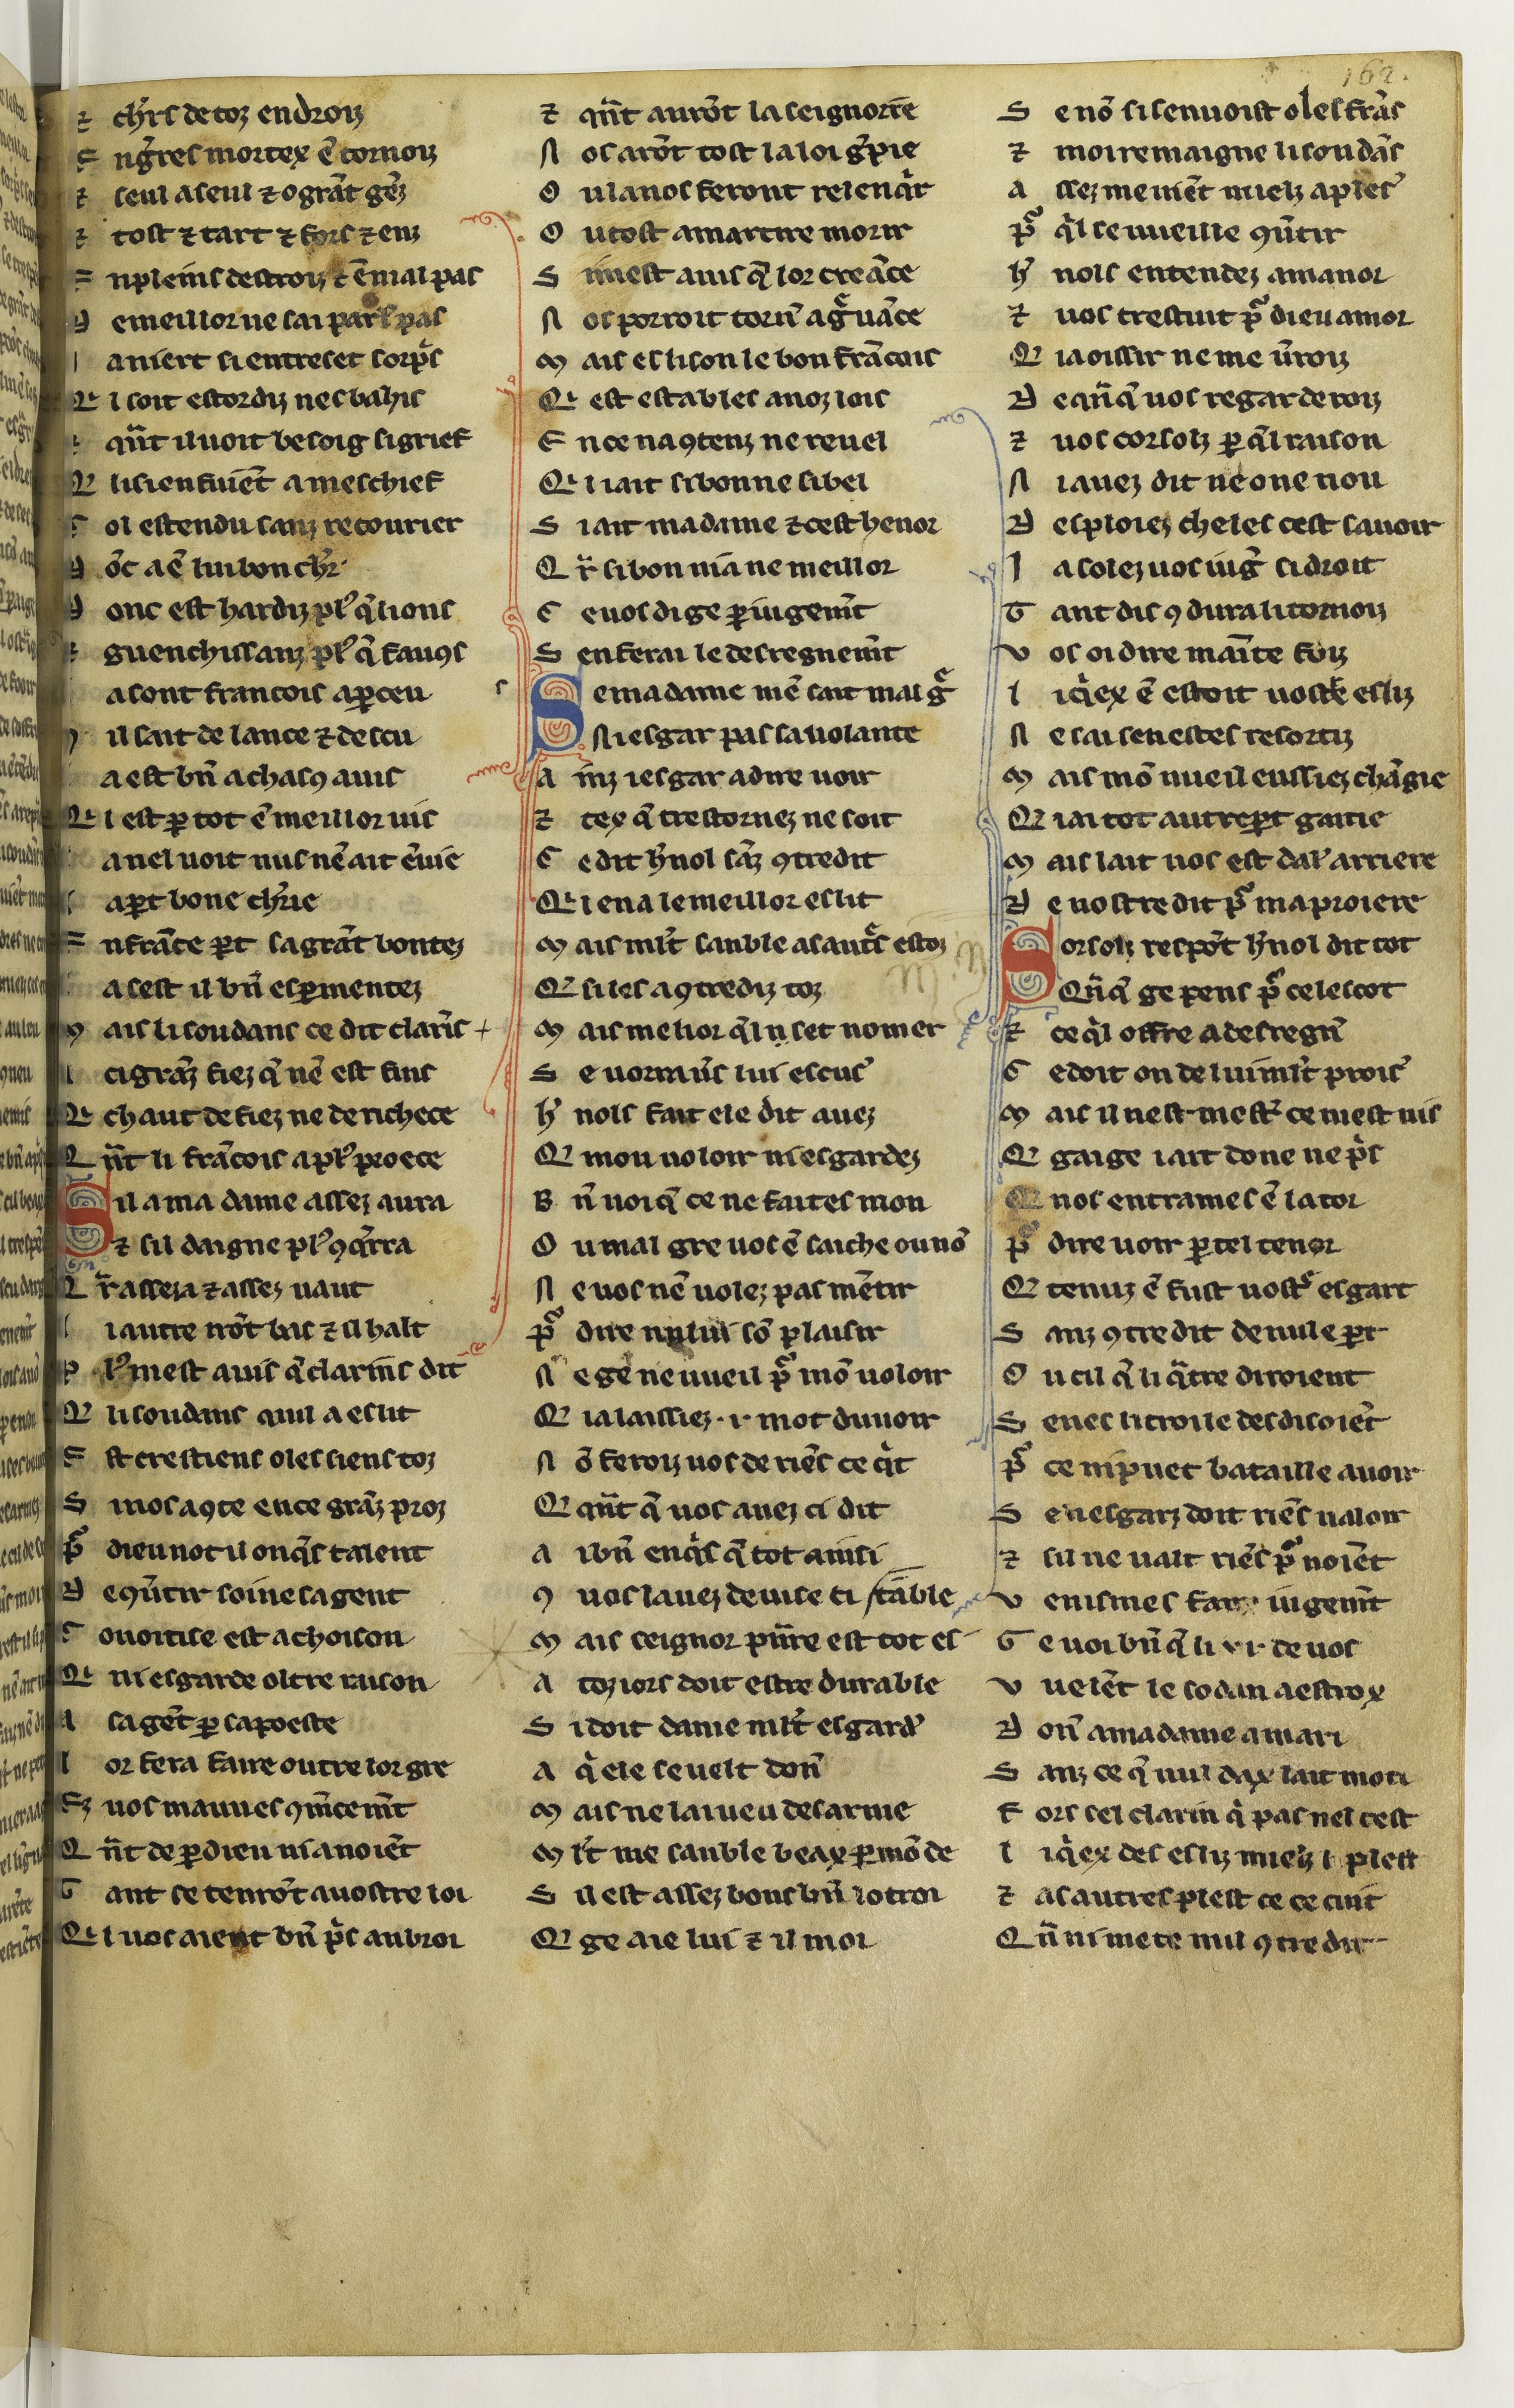 162.
⁊ ch'rs de toz endroiz
E ng̃res mortex ẽ tornoiz
⁊ seul a seul ⁊ o grãt gẽz
⁊ tost ⁊ tart ⁊ fors ⁊ enz
E npleins destroiz ⁊ ẽ mal pas
D e meillor ne sai parl' pas
aniert si entreset sorp'ˢ
Q'l soit estordiz nesbahis
qñt il uoit besoig si grief
Q li sien fuiẽt a meschief
C ol estendu sanz recourier
D õc a ẽ lui bon ch'r
D onc est hardiz pl' q̃ lions
⁊ guenchissanz pl' q̃ fauꝯs
a sont francois aꝑceu
il sait de lance ⁊ descu
a est bñ a chasꝯ auis
Q'l est ꝑ tot ẽ meillor uis
a nel uoit nus nẽ ait ẽuie
aꝑt bone ch'rie
E nfrãce ꝑt sa grãt bontez
a sest il bñ esꝑmentez
M ais li soudans ce dit clarĩs
ci grãz fiez q̃ nẽ est fins
Q' chaut de fiez ne de richece
Q ñt li frãcois a pl' proece
S il a ma dame assez aura
⁊ sil daigne pl' ꝯq̃rra
Q r̃ assez a ⁊ assez uaut
l iautre irõt bas ⁊ il halt
P l' mest auis q̃ clarins dit
Q li soudans qui l a eslit
E st crestiens o les siens toz
S i nos aꝯte en ce grãz proz
p' dieu not il onq̃s talent
D e ꝯũtir soi ne sa gent
C ouoitise est achoison
Q' ni esgarde oltre raison
A sa gẽt ꝑ sa poeste
l or fera faire outre lor gre
Ez uos mauues ꝯm̃cem̃t
Q ñt de ꝑ dieu ni a noiẽt
T ant se tenrõt a uostre loi
Q'l uos aient bñ p'ˢ au broi
⁊ qñt aurõt la seignorie
N os arõt tost la loi g̃pie
O u la nos feront relenq'r
O u tost a martire morir
S i mest auis q̃ lor creãce
N os porroit torñ a g'uãce
M ais eslison le bon frãcois
Q' est estables a noz lois
E n ce na ꝯtenz ne reuel
Q'l iait si bon ne si bel
S iait ma dame ⁊ cest henor
Q r̃ si bon ni a ne meillor
C e uos dige ꝑ iugem̃t
S en ferai le desregnem̃t
S e ma dame mẽ sait mal g'
N i esgar pas sa uolante
A inz iesgar a dire uoir
⁊ tex q̃ trestornez ne soit
C e dit h'nol sãz ꝯtredit
Q'l en a le meillor eslit
M ais ml't sanble as aut'ˢ estoz
Q si les a ꝯtrediz toz
M ais meillor q̃ lu set nomer
S e uormũs lui escus'
h' nols fait ele dit auez
Q mon uoloir ni esgardez
B ñ uoi q̃ ce ne faites mon
O u mal gre uos ẽ saiche ou nõ
N e uos nẽ uolez pas mẽtir
p' dire nului sõ plaisir
N e ge ne uueil p' mõ uoloir
Q ia laissiez ·i· mot du uoir
N õ feroiz uos de riẽs ce q't
Q qñt q̃ uos auez ci dit
A i bñ enq'ˢ q̃ tot ainsi
ꝯ uos lauez deuise ci
M ais seignor pñre est tot estable
A toz iors doit estre durable
S i doit dame ml't esgard'
A q' ele se uelt doñ
M ais ne lai ueu desarme
M l't me sanble beax ꝑ mõ de
S il est assez bons bñ lotroi
Q ge aie lui ⁊ il moi
S e nõ si sen uoist o les frãs
⁊ moi remaigne li soudãs
A ssez me uiẽt mielz a ples'
p' q̃l se uueille ꝯũtir
h' nols entendez amanor
⁊ uos trestuit p' dieu amor
Q ia oissir ne me ũroiz
D e qñq̃ uos regarderoiz
⁊ uos corsolz ꝑ q̃l raison
N i auez dit ne o ne non
D esploiez cheles cest sauoir
l a solez uos iug' si droit
T ant dis ꝯ dura li tornoiz
V os oi dire maĩte foiz
l iq̃ex ẽ estoit uostre esliz
N e sai sen estes resortiz
M ais mõ uueil eussiez chãgie
Q iai tot autreꝑt gaitie
M ais lait uos est dal' arriere
D e uostre dit p' ma proiere
S orsolz respõt h'nol dit tot
Qñq̃ ge pens p' cel escot
⁊ ce q̃l offre a desregñ
C e doit on de lui ml't prois'
M ais il nest mest' ce mest uis
Q gaige iait done ne p'ˢ
Q nos entrames ẽ la tor
p' dire uoir ꝑ tel tenor
Q tenuz ẽ fust uost' esgart
S anz ꝯtredit de nule ꝑt
O u cil q̃ li q̃tre diroient
S e nes li troi le desdisoiẽt
p' ce ni puet bataille auoir
S e uesgarz doit riẽs ualoir
⁊ sil ne ualt riẽs p' noiẽt
V enismes faire iugem̃t
G e uoi bñ q̃ li ·vi· de uos
V uelẽt le sodan a estrox
D oñ a ma dame a mari
S anz ce q̃ nul dax lait moti
F ors sel clarin q' pas nel test
l iq̃ex des esliz mielz l plest
⁊ as autres plest ce ce cuit
Q ñ ni mete nul ꝯtredit